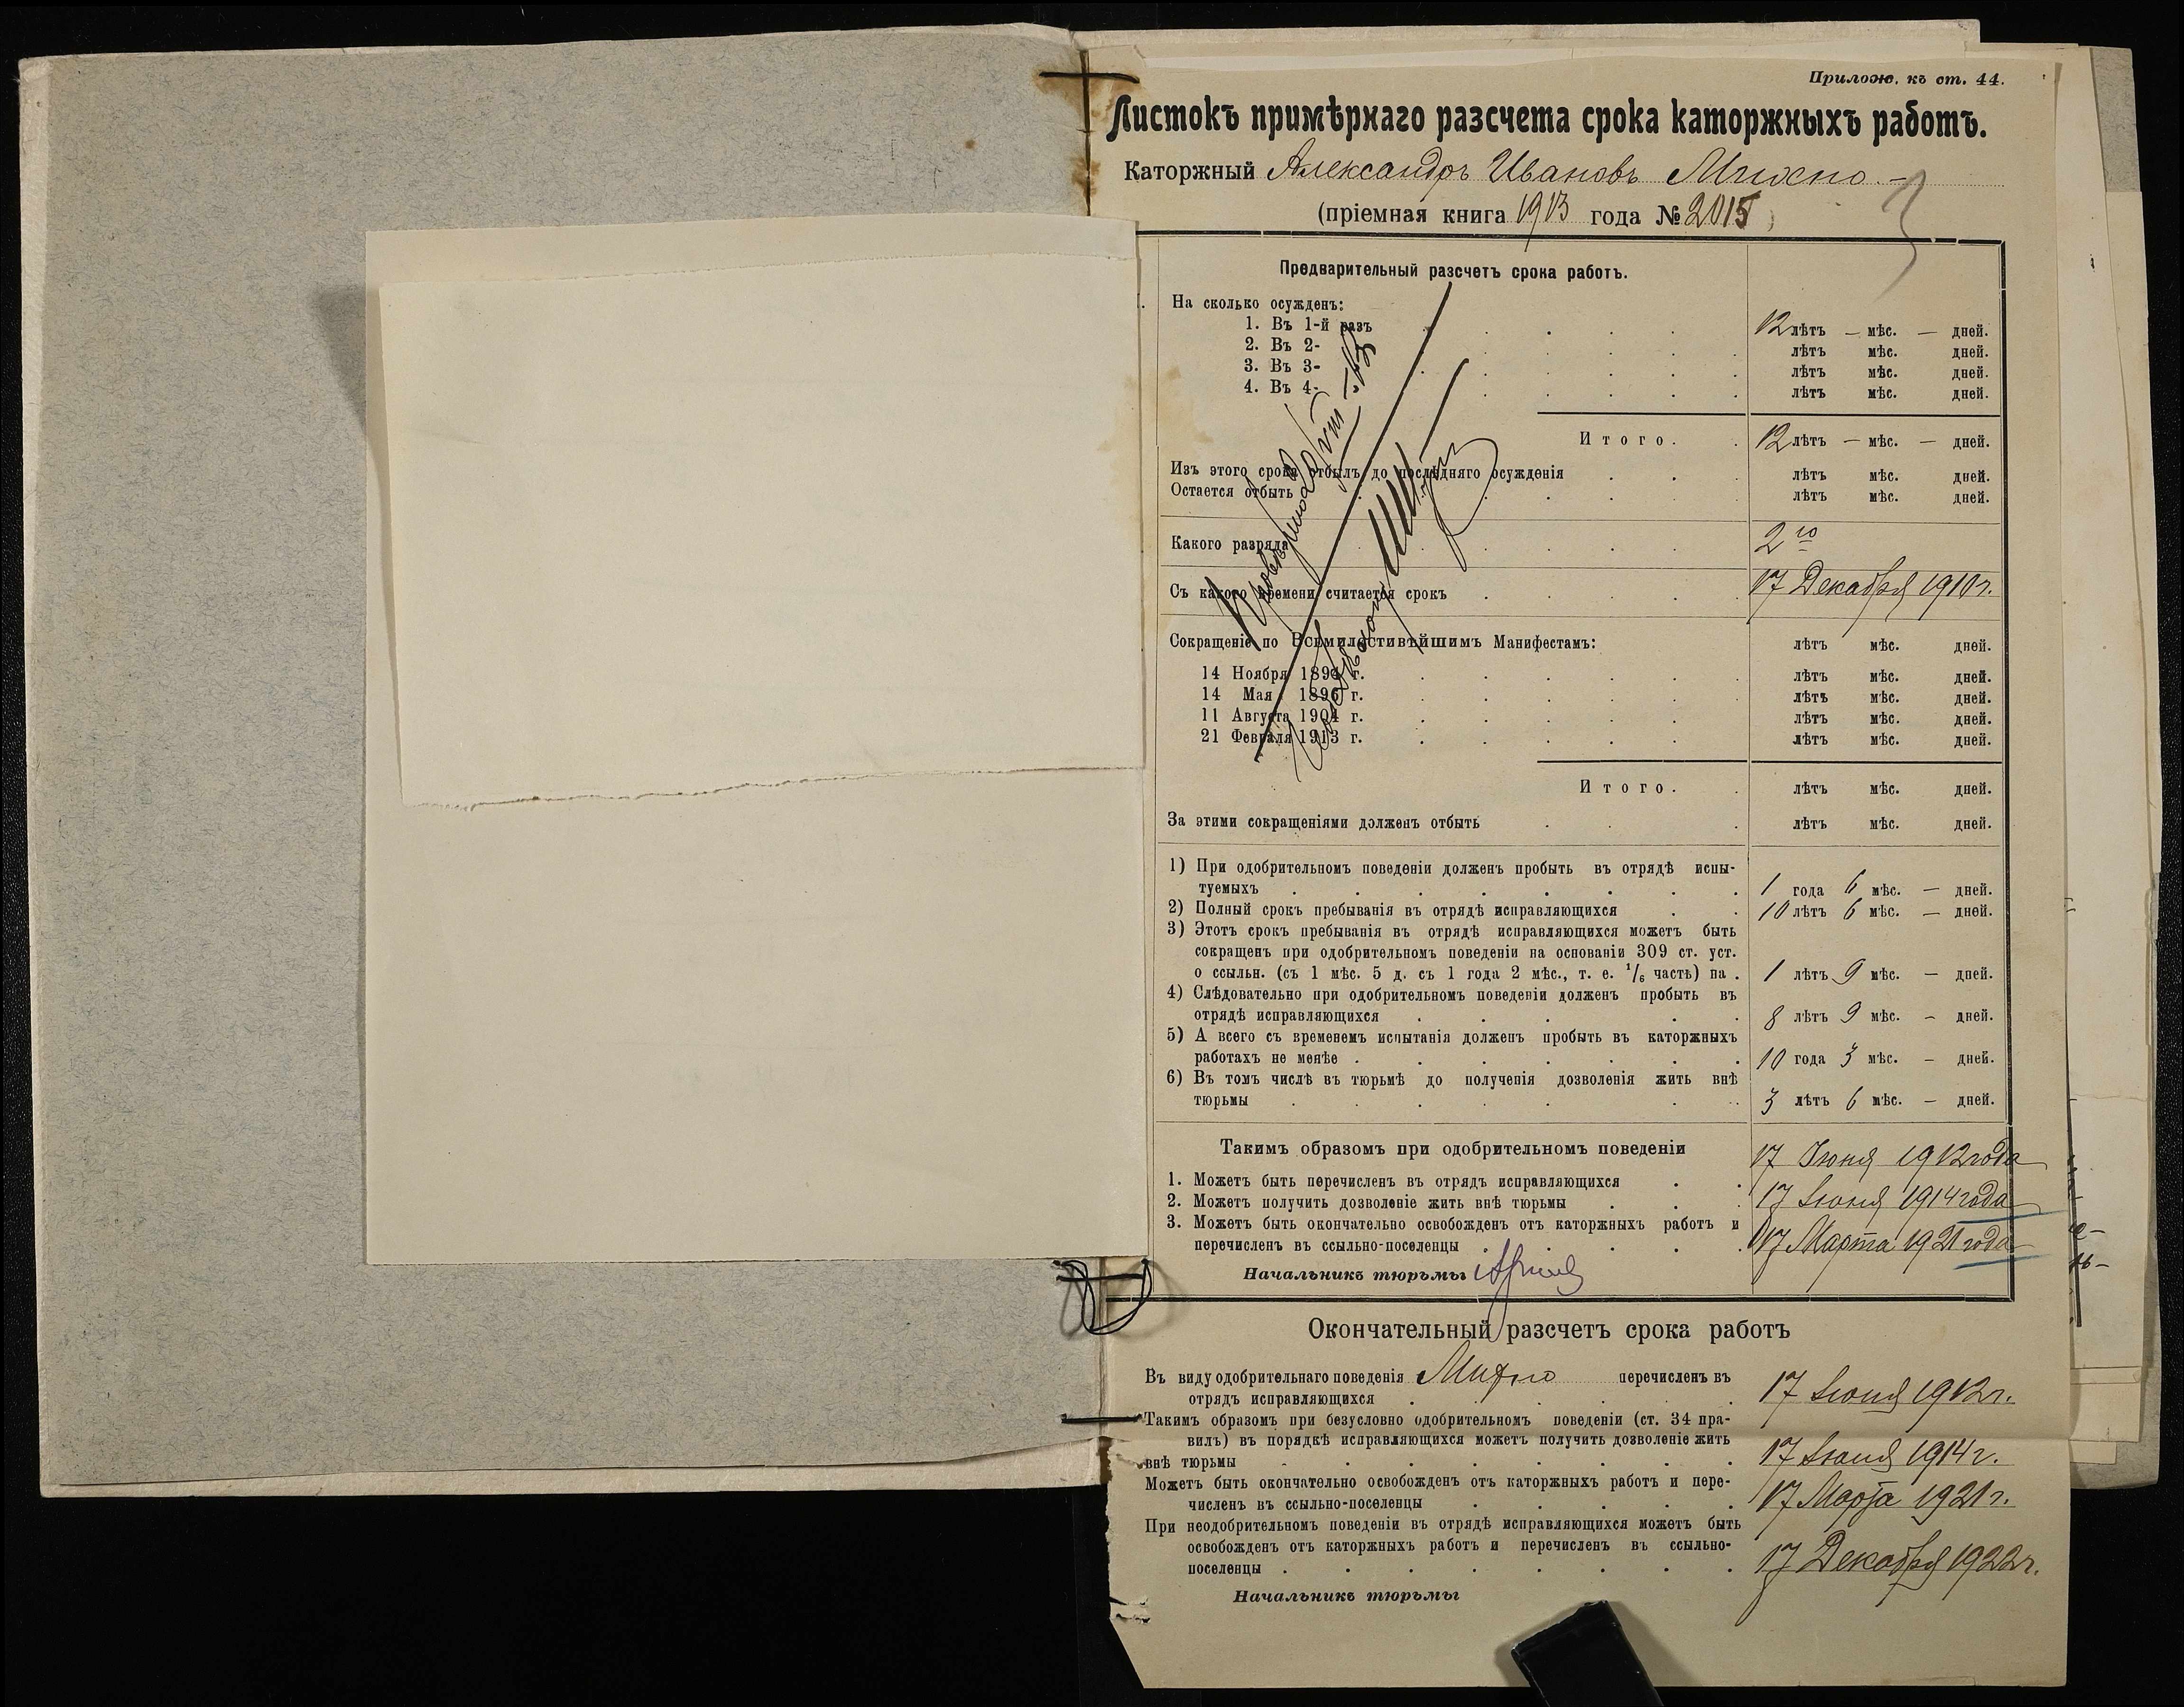 Прилож. къ ст. 44.
Листокъ примѣрнаго разсчета срока каторжныхъ работъ.
Каторжный Александръ Ивановъ Михно. –
(пріемная книга 1913 года № 2015)
3
Предварительный разсчетъ срока работъ.
На сколько осужденъ:
1. Въ 1-й разъ 12 лѣтъ — мѣс. — дней.
2. Въ 2- лѣтъ мѣс. дней.
3. Въ 3- лѣтъ мѣс. дней.
4. Въ 4- лѣтъ мѣс. дней.
Итого. 12 лѣтъ — мѣс. — дней.
Изъ этого срока отбылъ до послѣдняго осужденія лѣтъ мѣс. дней.
Остается отбыть лѣтъ мѣс. дней.
Какого разряда 2го
Съ какого времени считается срокъ 17 Декабря 1910 г.
Сокращеніе по Всемилостивѣйшимъ Манифестамъ: лѣтъ мѣс. дней.
14 Ноября 1894 г. лѣтъ мѣс. дней.
14 Мая 1896 г. лѣтъ мѣс. дней.
11 Августа 1904 г. лѣтъ мѣс. дней.
21 Февраля 1913 г. лѣтъ мѣс. дней.
Итого. лѣтъ мѣс. дней.
За этими сокращеніями долженъ отбыть лѣтъ мѣс. дней.
1) При одобрительномъ поведеніи долженъ пробыть въ отрядѣ испы-
туемыхъ 1 года 6 мѣс. — дней.
2) Полный срокъ пребыванія въ отрядѣ исправляющихся 10 лѣтъ 6 мѣс. — дней.
3) Этотъ срокъ пребыванія въ отрядѣ исправляющихся можетъ быть
сокращенъ при одобрительномъ поведеніи на основаніи 309 ст. уст.
о ссыльн. (съ 1 мѣс. 5 д. съ 1 года 2 мѣс., т. е. 1/6 часть) на 1 лѣтъ 9 мѣс. — дней.
4) Слѣдовательно при одобрительномъ поведеніи долженъ пробыть въ
отрядѣ исправляющихся 8 лѣтъ 9 мѣс. — дней.
5) А всего съ временемъ испытанія долженъ пробыть въ каторжныхъ
работахъ не менѣе 10 года 3 мѣс. — дней.
6) Въ томъ числѣ въ тюрьмѣ до полученія дозволенія жить внѣ
тюрьмы 3 лѣтъ 6 мѣс. — дней.
Такимъ образомъ при одобрительномъ поведеніи
1. Можетъ быть перечисленъ въ отрядъ исправляющихся 17 Іюня 1912 года
2. Можетъ получить дозволеніе жить внѣ тюрьмы 17 Іюня 1914 года
3. Можетъ быть окончательно освобожденъ отъ каторжныхъ работъ и
перечисленъ въ ссыльно-поселенцы 17 Марта 1921 года
Начальникъ тюрьмы
Окончательный разсчетъ срока работъ
Въ виду одобрительнаго поведенія Михно перечисленъ въ
отрядъ исправляющихся 17 Іюня 1912 г.
Такимъ образомъ при безусловно одобрительномъ поведеніи (ст. 34 пра-
вилъ) въ порядкѣ исправляющихся можетъ получить дозволеніе жить
внѣ тюрьмы 17 Іюня 1914 г.
Можетъ быть окончательно освобожденъ отъ каторжныхъ работъ и пере-
численъ въ ссыльно-поселенцы 17 Марта 1921 г.
При неодобрительномъ поведеніи въ отрядѣ исправляющихся можетъ быть
освобожденъ отъ каторжныхъ работъ и перечисленъ въ ссыльно-
поселенцы 17 Декабря 1922 г.
Начальникъ тюрьмы